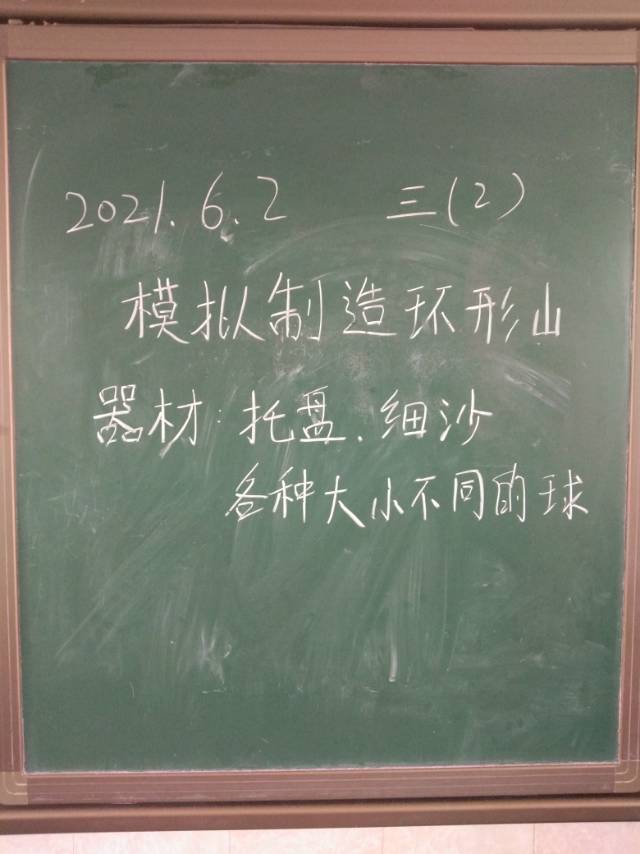 2021.6.2 三(2)
模拟制造环形山
器材:托盘、细沙
各种大小不同的球